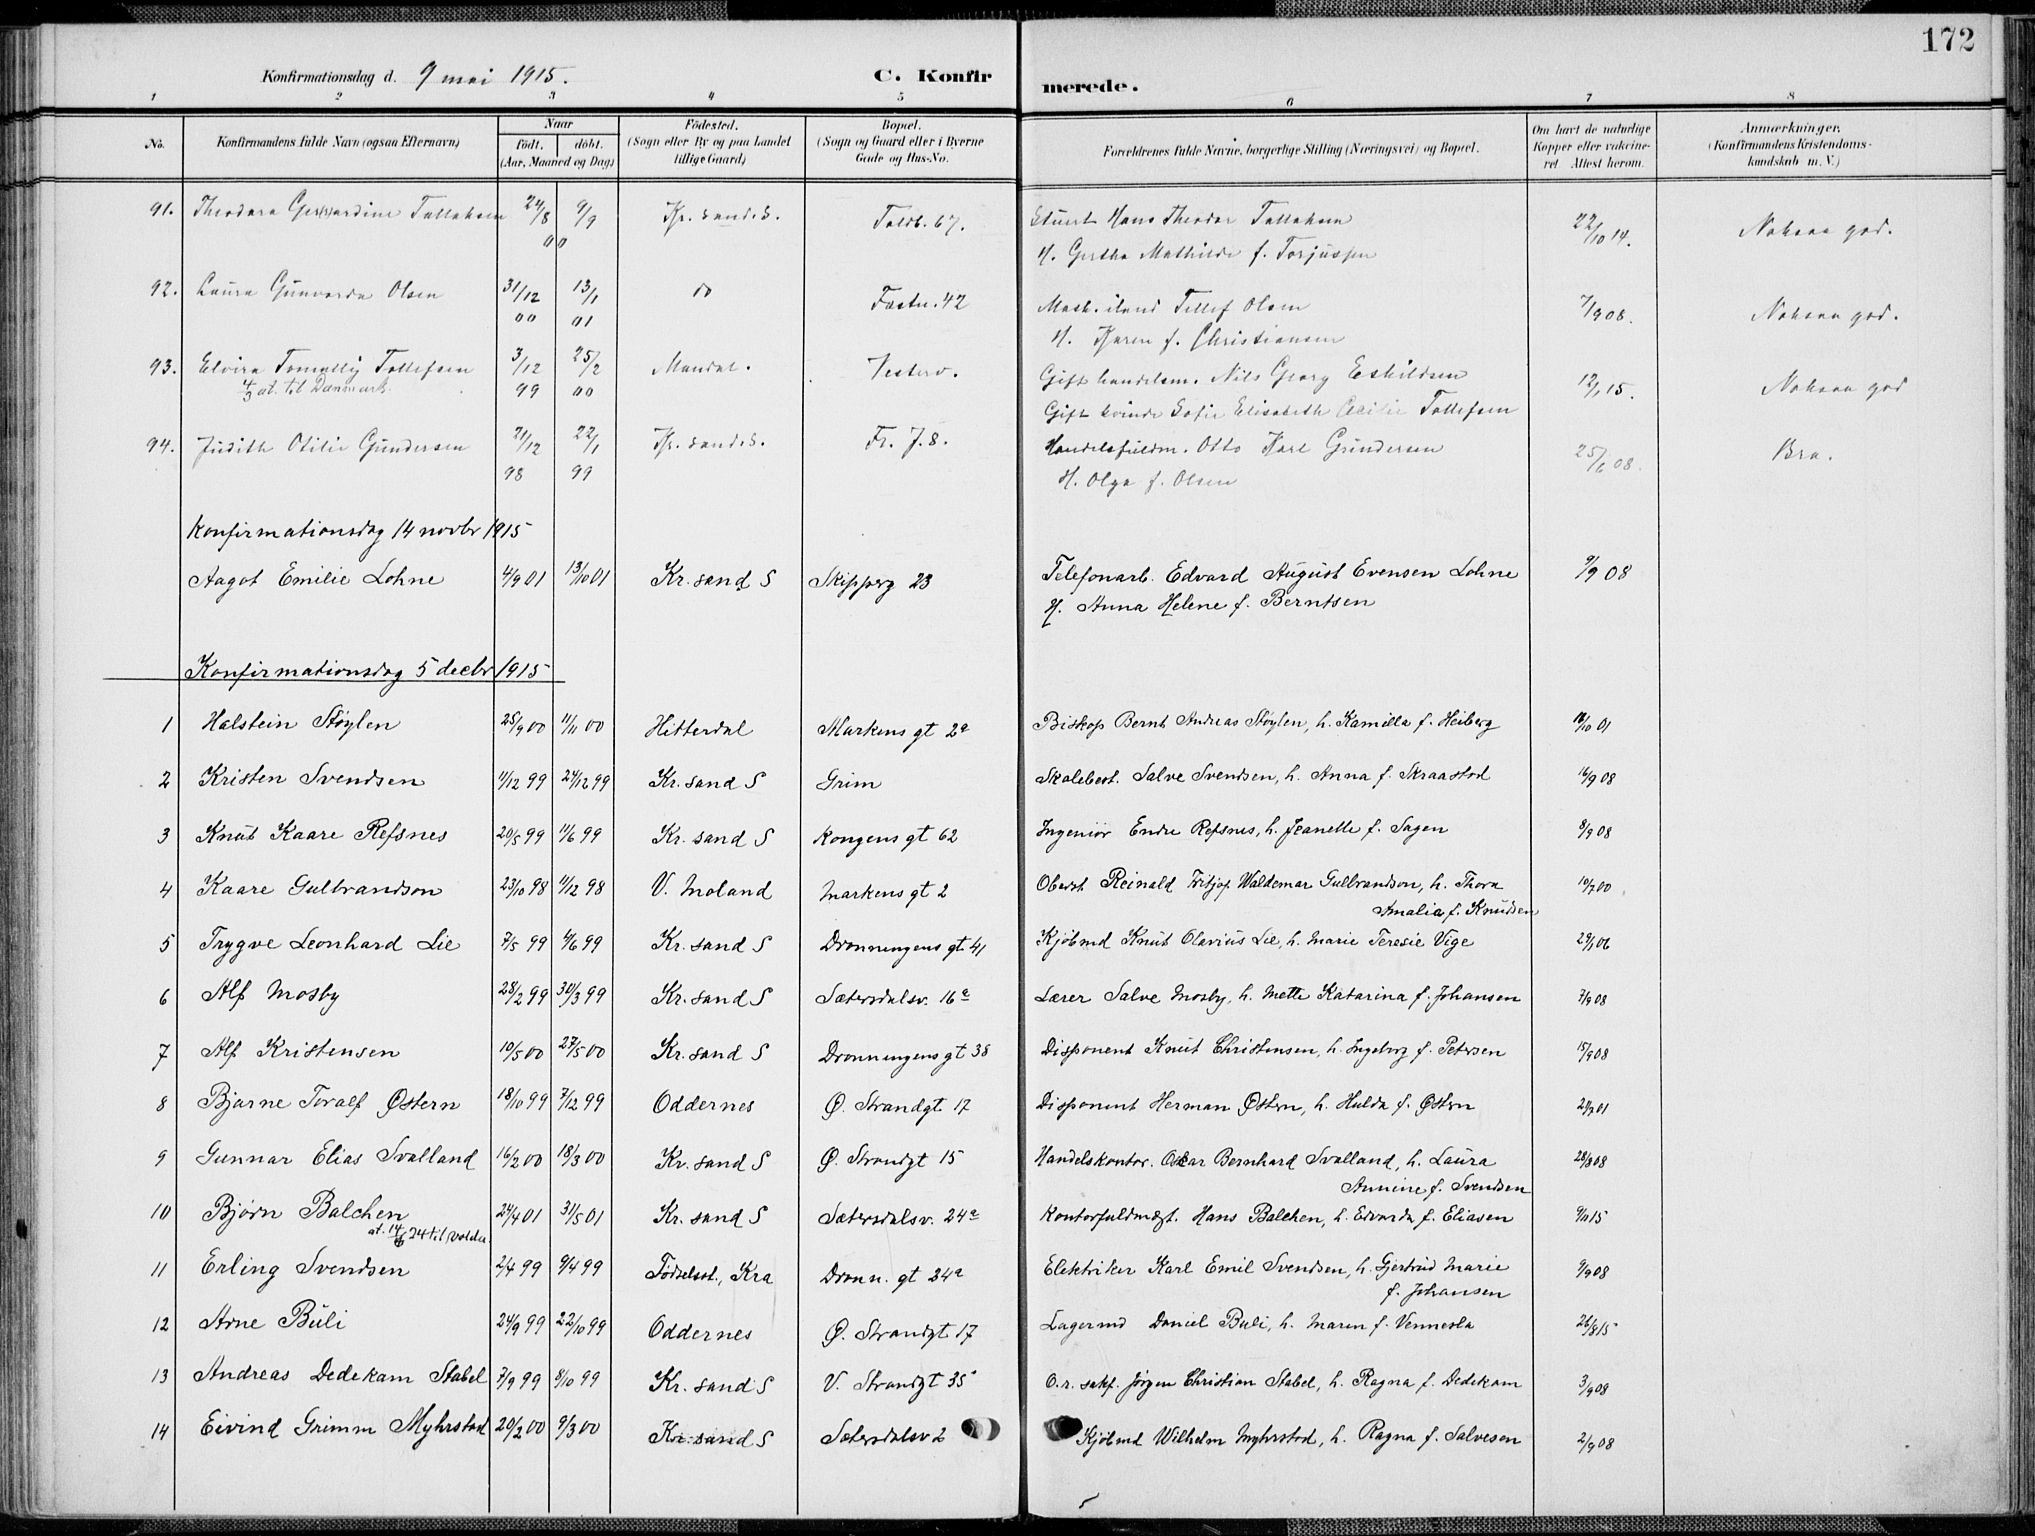 172
Konfirmationsdag d. 9 mai 1915. C. Konfirmerede.
1 2 3 4 5 6 7 8
No. Konfirmandens fulde Navn (ogsaa Efternavn) Naar født. døbt. (Aar, Maaned og Dag) Fødested. (Sogn eller By og paa Landet tillige Gaard) Bopæl. (Sogn og Gaard eller i Byerne Gade og Hus-No. Forældrenes fulde Navne, borgerlige Stilling (Næringsvei) og Bopæl. Om havt de naturlige Kopper eller vakcineret. Attest herom. Anmærkninger. (Konfirmandens Kristendomskundskab m. V.)
91. Theodora Gerhardine Tallaksen 24/8 9/9 Kr.sand S. Toldb. 67. Stuert Hans Theodor Tallaksen 22/10 14. Noksaa god.
00 H. Gertha Mathilde f. Torjussen
92. Laura Gunvarda Olsen 31/12 13/1 do Fæstn. 42 Mask. Tellef Olsen 7/9 08. Noksaa god.
00 01 H. Karen f. Christiansen
93. Elvira Tollefsen 3/12 25/2 Mandal. Vesterv. Gift handelsm. Nils Georg Eskildsen 12/1 15. Noksaa god
4/3 at. til Danmark. 99 00 Gift kvinde Sofie Elisabeth Cecilie Tollefsen
94. Judith Otilie Gundersen 21/12 22/1 Kr.sand S. Fr. J. 8. Handelsfuldm. Otto Karl Gundersen 25/6 08. Bra.
98 99 H. Olga f. Olsen
Konfirmationsdag 14 novbr 1915
Aagot Emilie Lohne 4/9 01 13/10 01 Kr.sand S Skipperg 23 Telefonarb. Edvard August Evensen Lohne 9/9 08
H. Anna Helene f. Berntsen
Konfirmationsdag 5 decbr 1915
1 Halstein Støylen 25/9 00 11/11 00 Hitterdal Markens gt 2a Biskop Bernt Andreas Støylen, h. Kamilla f. Heiberg 18/10 01
2 Kristen Svendsen 11/12 99 24/12 99 Kr.sand S Grim Skolebest. Salve Svendsen, h. Anna f. Skraastad 16/9 08
3 Knut Kaare Refsnes 20/5 99 11/6 99 Kr.sand S Kongens gt 62 Ingeniør Endre Refsnes, h. Jeanette f. Sagen 8/9 08
4 Kaare Gulbrandson 23/10 98 11/12 98 V. Moland Markens gt 2 Oberst Reinald Fritjof Waldemar Gulbrandson, h. Thora 10/7 00
Amalia f. Knudsen
5 Trygve Leonhard Lie 7/5 99 4/6 99 Kr.sand S Dronningens gt 41 Kjøbmd Knut Olavius Lie, h. Marie Teresie Vige 29/1 06
6 Alf Mosby 28/2 99 30/3 99 Kr.sand S Sætersdalsv. 16a Lærer Salve Mosby, h. Mette Katarina f. Johansen 7/9 08
7 Alf Kristensen 10/5 00 27/5 00 Kr.sand S Dronningens gt 38 Disponent Knut Christensen, h. Ingeborg f. Petersen 15/9 08
8 Bjarne Toralf Østern 18/10 99 7/12 99 Oddernes Ø. Strandgt 17 Disponent Herman Østern, h. Hulda f. Østern 01
9 Gunnar Elias Svalland 16/2 00 18/3 00 Kr.sand S Ø. Strandgt 15 Handelskontor. Oscar Bernhard Svalland, h. Laura 28/8 08
Annine f. Svendsen
10 Bjørn Balchen 24/4 01 31/5 01 Kr.sand S Sætersdalsv. 24a Kontorfuldmægt. Hans Balchen, h. Edvarda f. Eliasen 9/11 15
at. 14/6 24 til Volda
11 Erling Svendsen 2/4 99 9/4 99 Fødselsst., Kra Dronn. gt 34a Elektriker Karl Emil Svendsen, h. Gjertrud Marie 9/9 08
f. Johansen
12 Arne Buli 24/9 99 22/10 99 Oddernes Ø. Strandgt 17 Lagermd Daniel Buli, h. Maren f. Vennesla 26/8 15
13 Andreas Dedekam Stabel 7/9 99 8/10 99 Kr.sand S V. Strandgt 35 O.r. sakf. Jørgen Christian Stabel, h. Ragna f. Dedekam 3/9 08
14 Eivind Grimm Myhrstad 20/2 00 9/3 00 Kr.sand S Sætersdalsv 2 Kjøbmd Wilhelm Myhrstad, h. Ragna f. Salvesen 2/9 08